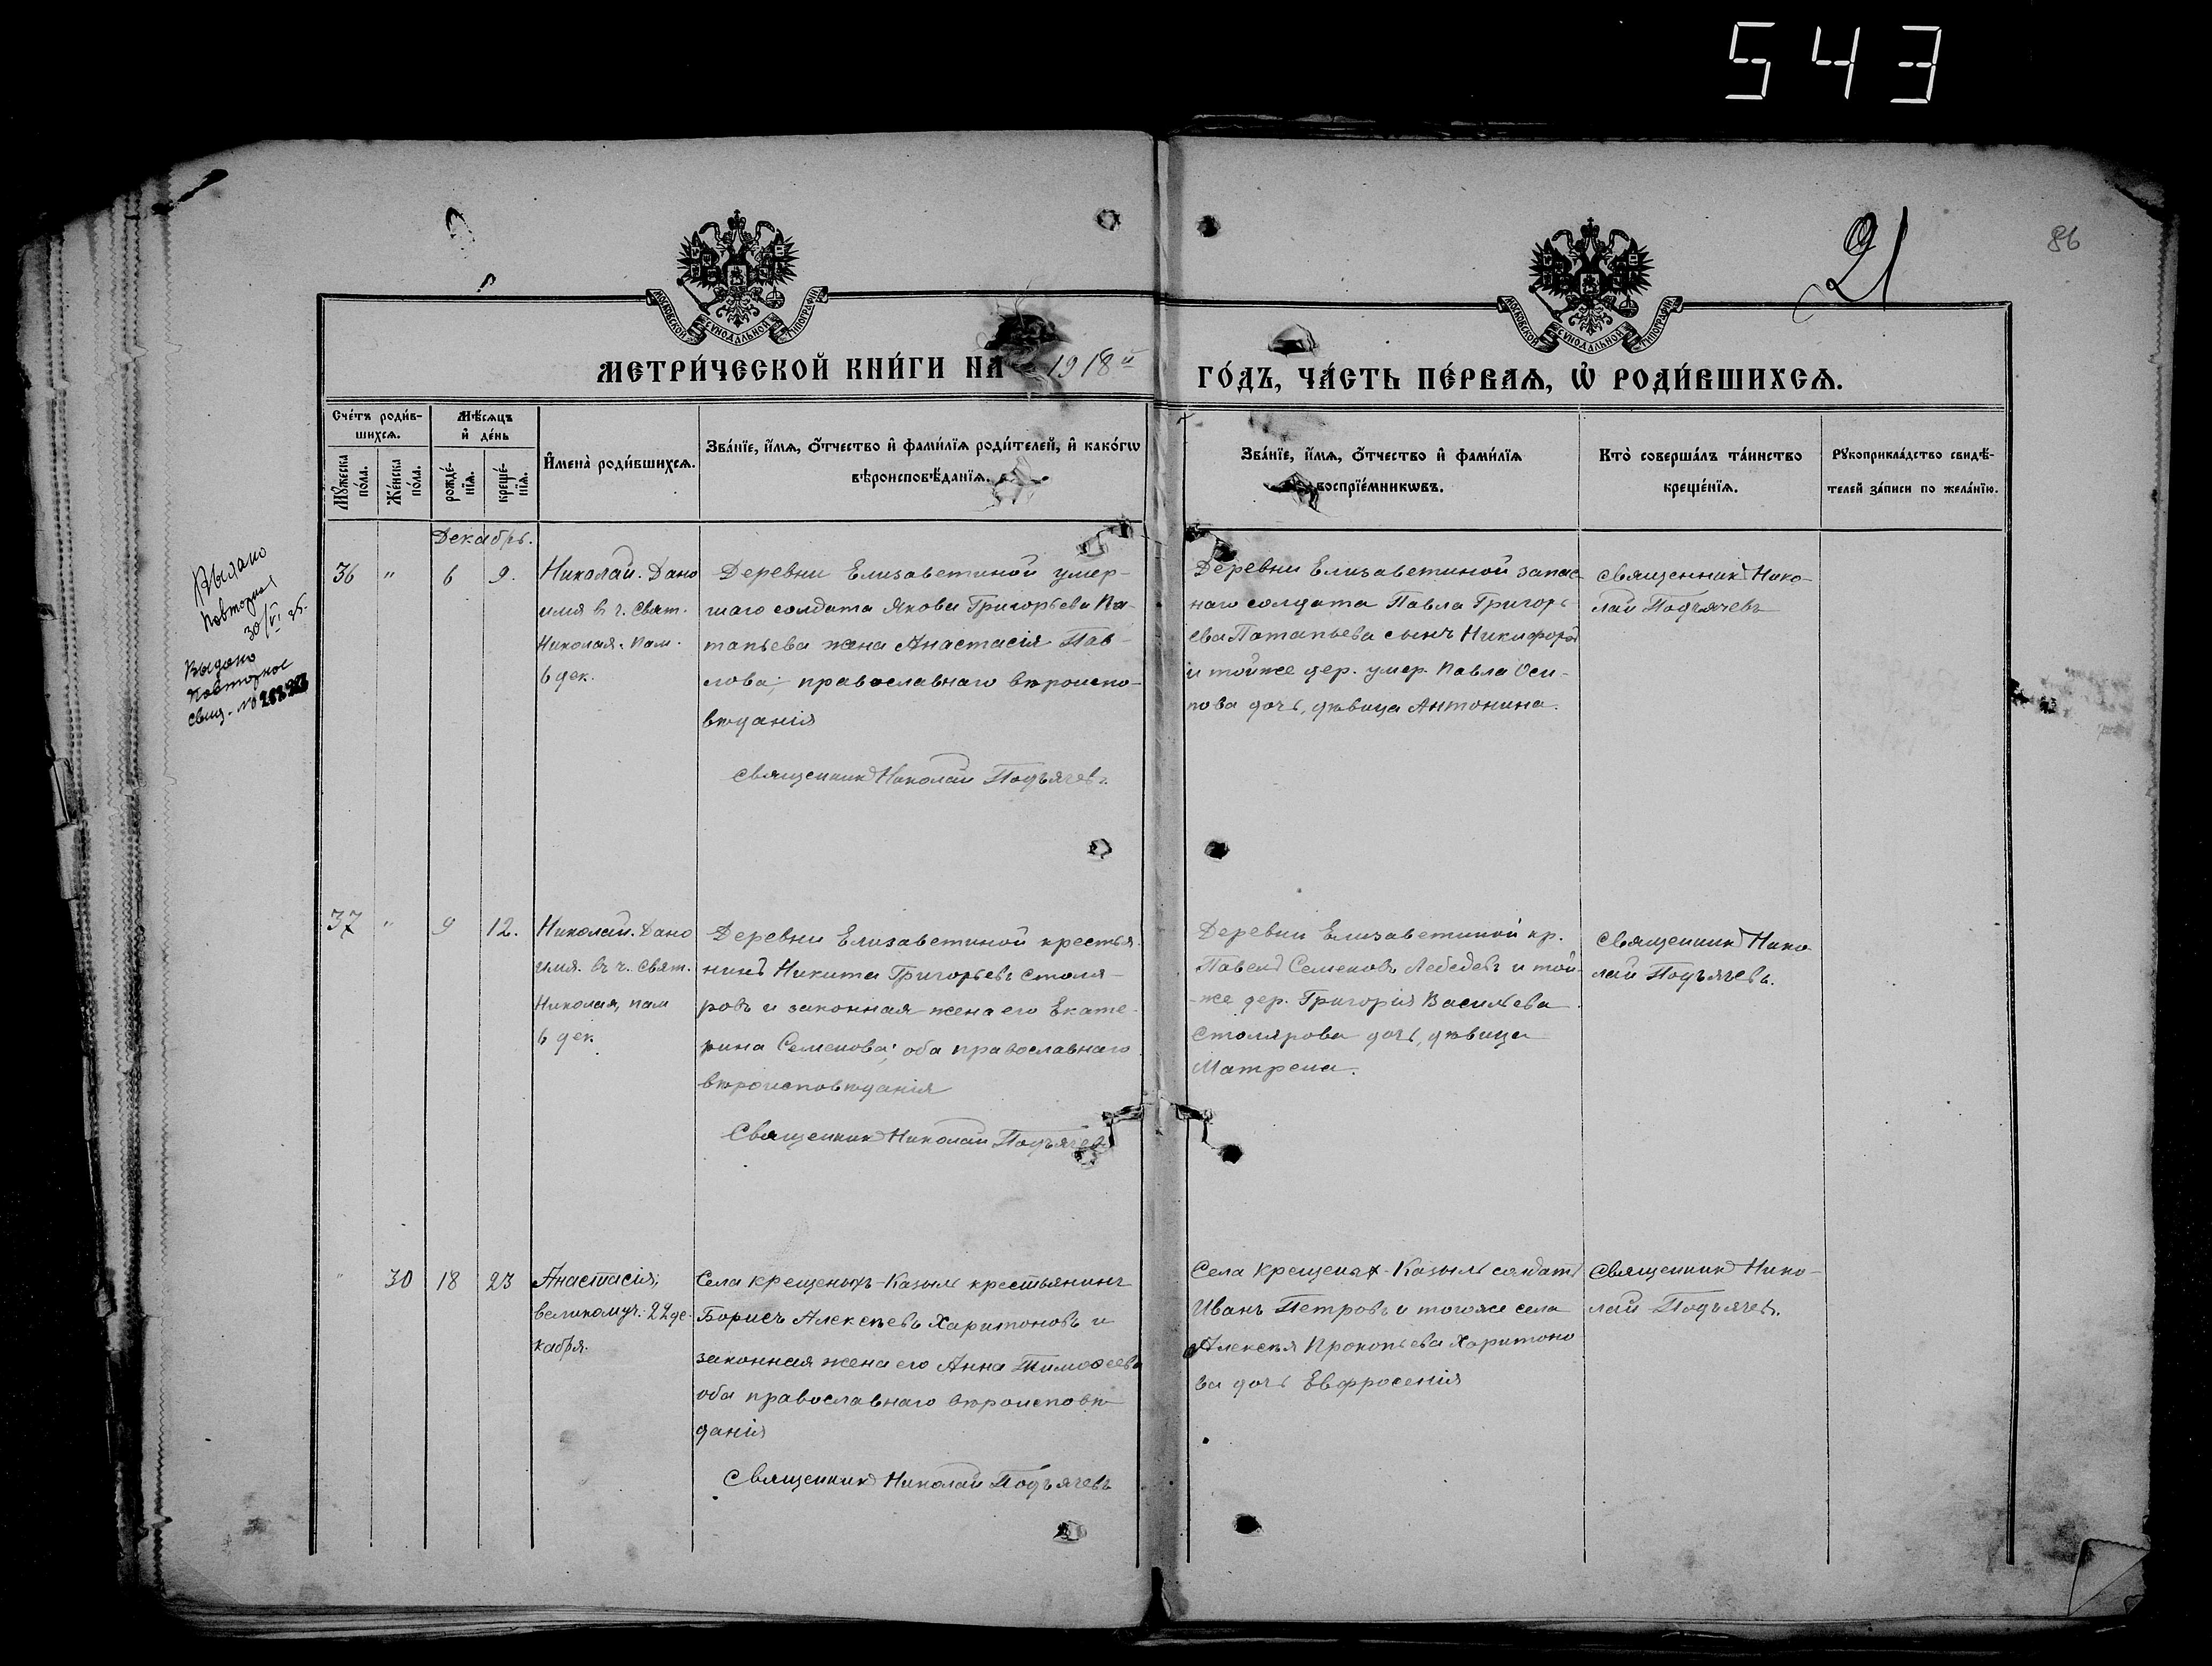 543
21
86
МОСКОВСКОЙ СУНОДАЛЬНОЙ ТИПОГРАФІИ
МОСКОВСКОЙ СУНОДАЛЬНОЙ ТИПОГРАФІИ
МЕТРИ́ЧЕСКОЙ КНИ́ГИ НА 1918й
ГО́ДЪ, ЧА́СТЬ ПЕ́РВАЯ, Ѽ РОДИ́ВШИХСЯ.
Сче́тъ роди́в-
шихся.
Мѣ́сяцъ
и҆ де́нь
Мꙋ́жеска
по́ла.
Же́нска
по́ла.
рожде́-
нїя.
креще́-
нїя.
И҆мена̀ роди́вшихся.
Зва́нїе, и҆́мя, ѻ҆́тчество и҆ фами́лїя роди́телей, и҆ како́гѡ
вѣроисповѣ́данїя.
Зва́нїе, и҆́мя, ѻ҆́тчество и҆ фами́лїя
воспрїе́мникѡвъ.
Кто̀ соверша́лъ та́инство
креще́нїя.
Рꙋкоприкла́дство свидѣ́-
телей за́писи по жела́нїю.
Декабрь.
36 " 6 9.
Николай. Дано
имя в ч. Свят.
Николая. пам.
6 дек.
Деревни Елизаветиной умер-
шаго солдата Якова Григорьева По-
тапьева жена Анастасія Пав-
лова; православнаго вѣроиспо-
вѣданія
Священникъ Николай Подъячевъ.
Деревни Елизаветиной запас
наго солдата Павла Григорь
ева Потапьева сынъ Никифоръ
и тойже дер. умер. Павла Оси-
пова дочь, дѣвица Антонина.
Священникъ Нико-
лай Подъячевъ
Выдано
повторное
30/VI 35.
Выдано
повторное
свид. №
37 " 9 12.
Николай. Дано
имя. въ ч. Свят.
Николая, пам
6 дек
Деревни Елизаветиной крестья-
нинъ Никита Григорьевъ Столя-
ровъ и законная жена его Екате-
рина Семенова; оба православнаго
вѣроисповѣданія
Священникъ Николай Подъячевъ
Деревни Елизаветиной кр.
Павелъ Семеновъ Лебедевъ и той-
-же дер. Григорія Васильева
Столярова дочь, дѣвица
Матрена.
Священникъ Нико
лай Подъячевъ.
" 30 18 23
Анастасія;
великомуч. 22 де-
кабря.
Села Крещеныхъ-Казыль крестьянинъ
Борисъ Алексѣевъ Харитоновъ и
законная жена его Анна Тимоѳеева
оба православнаго вѣроисповѣ
данія
Священникъ Николай Подъячевъ
Села Крещеных-Казыль солдатъ
Иванъ Петровъ и тогоже села
Алексѣя Прокопьева Харитоно
ва дочь Евфросенія
Священникъ Нико-
лай Подъячевъ.